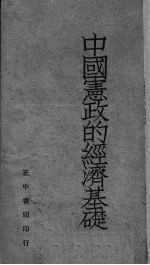 中國憲政的經濟基礎
正中書局印行